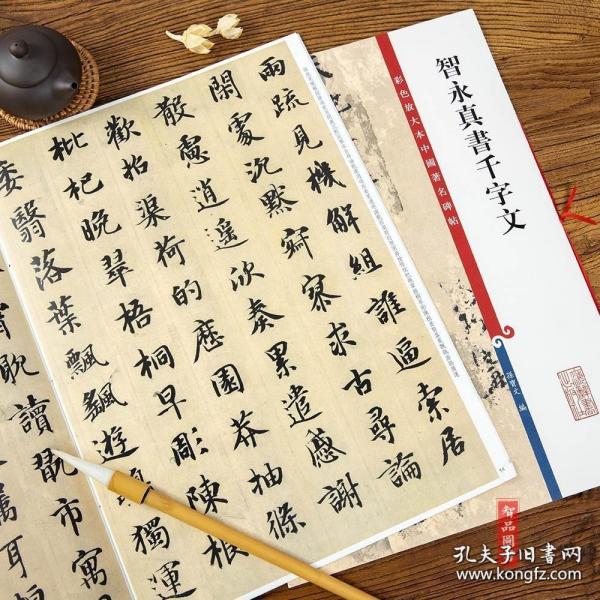 兩疏見機解組誰逼索居
閑處沉默寂寥求古尋論
散慮逍遙欣奏累遣慼謝
歡招渠荷的歷園莽抽條
枇杷晚翠梧桐早彫陳根
委翳落葉飄颻遊獨運
耽讀翫市寓
耳垣
智永真書千字文
彩色放大本中國著名碑帖
孫寶文 編
智品圖
孔夫子旧書网
www.kongfz.com